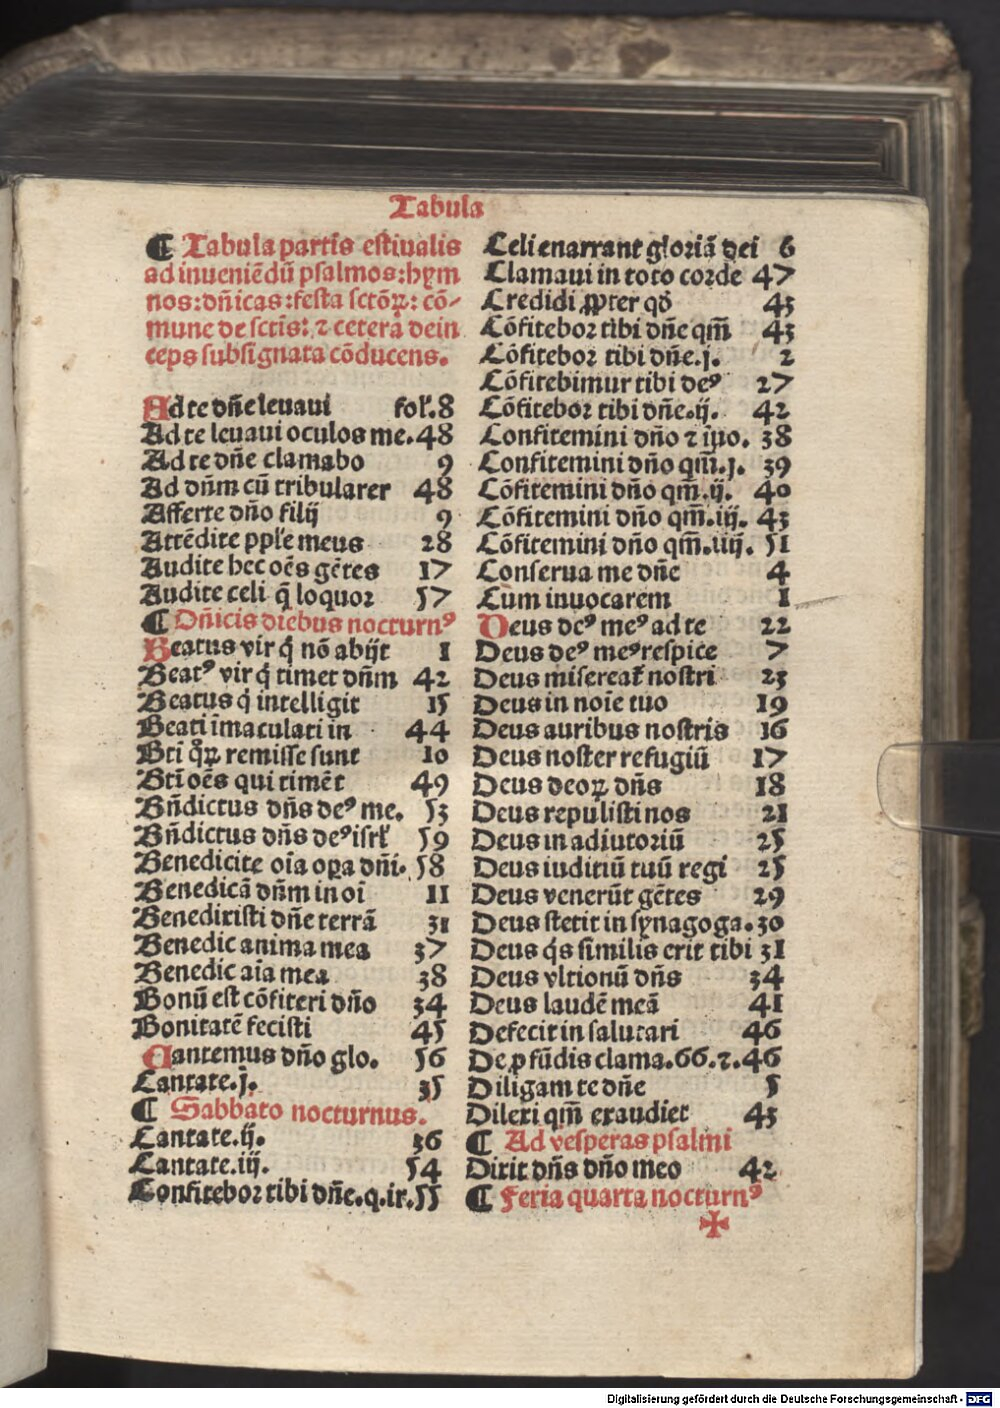 Tabula
¶ Tabula partis estiualis
ad inueniēdū psalmos: hym
nos: dñicas: festa sctōꝝ: cō-
mune de sctis: ⁊ cetera dein
ceps subsignata cōducens.
Ad te dñe leuaui fol'. 8
Ad te leuaui oculos me. 48
Ad te dñe clamabo 9
Ad dñm cū tribularer 48
Afferte dño filij 9
Attēdite pple meus 28
Audite hec oēs gētes 17
Audite celi q̄ loquor 57
¶ Dñicis diebus nocturnꝰ
Beatus vir q̇ nō abijt 1
Beatꝰ vir q̇ timet dñm 42
Beatus q̇ intelligit 15
Beati īmaculati in 44
Bti qͦꝝ remisse sunt 10
Bti oēs qui timēt 49
Bñdictus dñs deꝰ me. 53
Bñdictus dñs deꝰ isrl' 59
Benedicite oīa oꝑa dñi. 58
Benedicā dñm in oī 11
Benedixisti dñe terrā 31
Benedic anima mea 37
Benedic aīa mea 38
Bonū est cōfiteri dño 34
Bonitatē fecisti 45
Cantemus dño glo. 56
Cantate. j. 35
¶ Sabbato nocturnus.
Cantate. ij. 36
Cantate. iij. 54
Confitebor tibi dñe. q. ir. 55
Celi enarrant gloriā dei 6
Clamaui in toto corde 47
Credidi ꝓpter qđ 43
Cōfitebor tibi dñe qm̄ 43
Cōfitebor tibi dñe. j. 2
Cōfitebimur tibi deꝰ 27
Cōfitebor tibi dñe. ij. 42
Confitemini dño ⁊ iuo. 38
Confitemini dño qm̄. j. 39
Cōfitemini dño qm̄. ij. 40
Cōfitemini dño qm̄. iij. 43
Cōfitemini dño qm̄. iiij. 51
Conserua me dñe 4
Cum inuocarem 1
Deus deꝰ meꝰ ad te 22
Deus deꝰ meꝰ respice 7
Deus misereat̄ nostri 23
Deus in noīe tuo 19
Deus auribus nostris 16
Deus noster refugiū 17
Deus deoꝝ dñs 18
Deus repulisti nos 21
Deus in adiutoriū 25
Deus iuditiū tuū regi 25
Deus venerūt gētes 29
Deus stetit in synagoga. 30
Deus q̇s similis erit tibi 31
Deus vltionū dñs 34
Deus laudē meā 41
Defecit in salutari 46
De ꝓfūdis clama. 66. ⁊. 46
Diligam te dñe 5
Dilexi qm̄ exaudiet 43
¶ Ad vesperas psalmi
Dixit dñs dño meo 42
¶ Feria quarta nocturnꝰ
✠
Digitalisierung gefördert durch die Deutsche Forschungsgemeinschaft - DFG